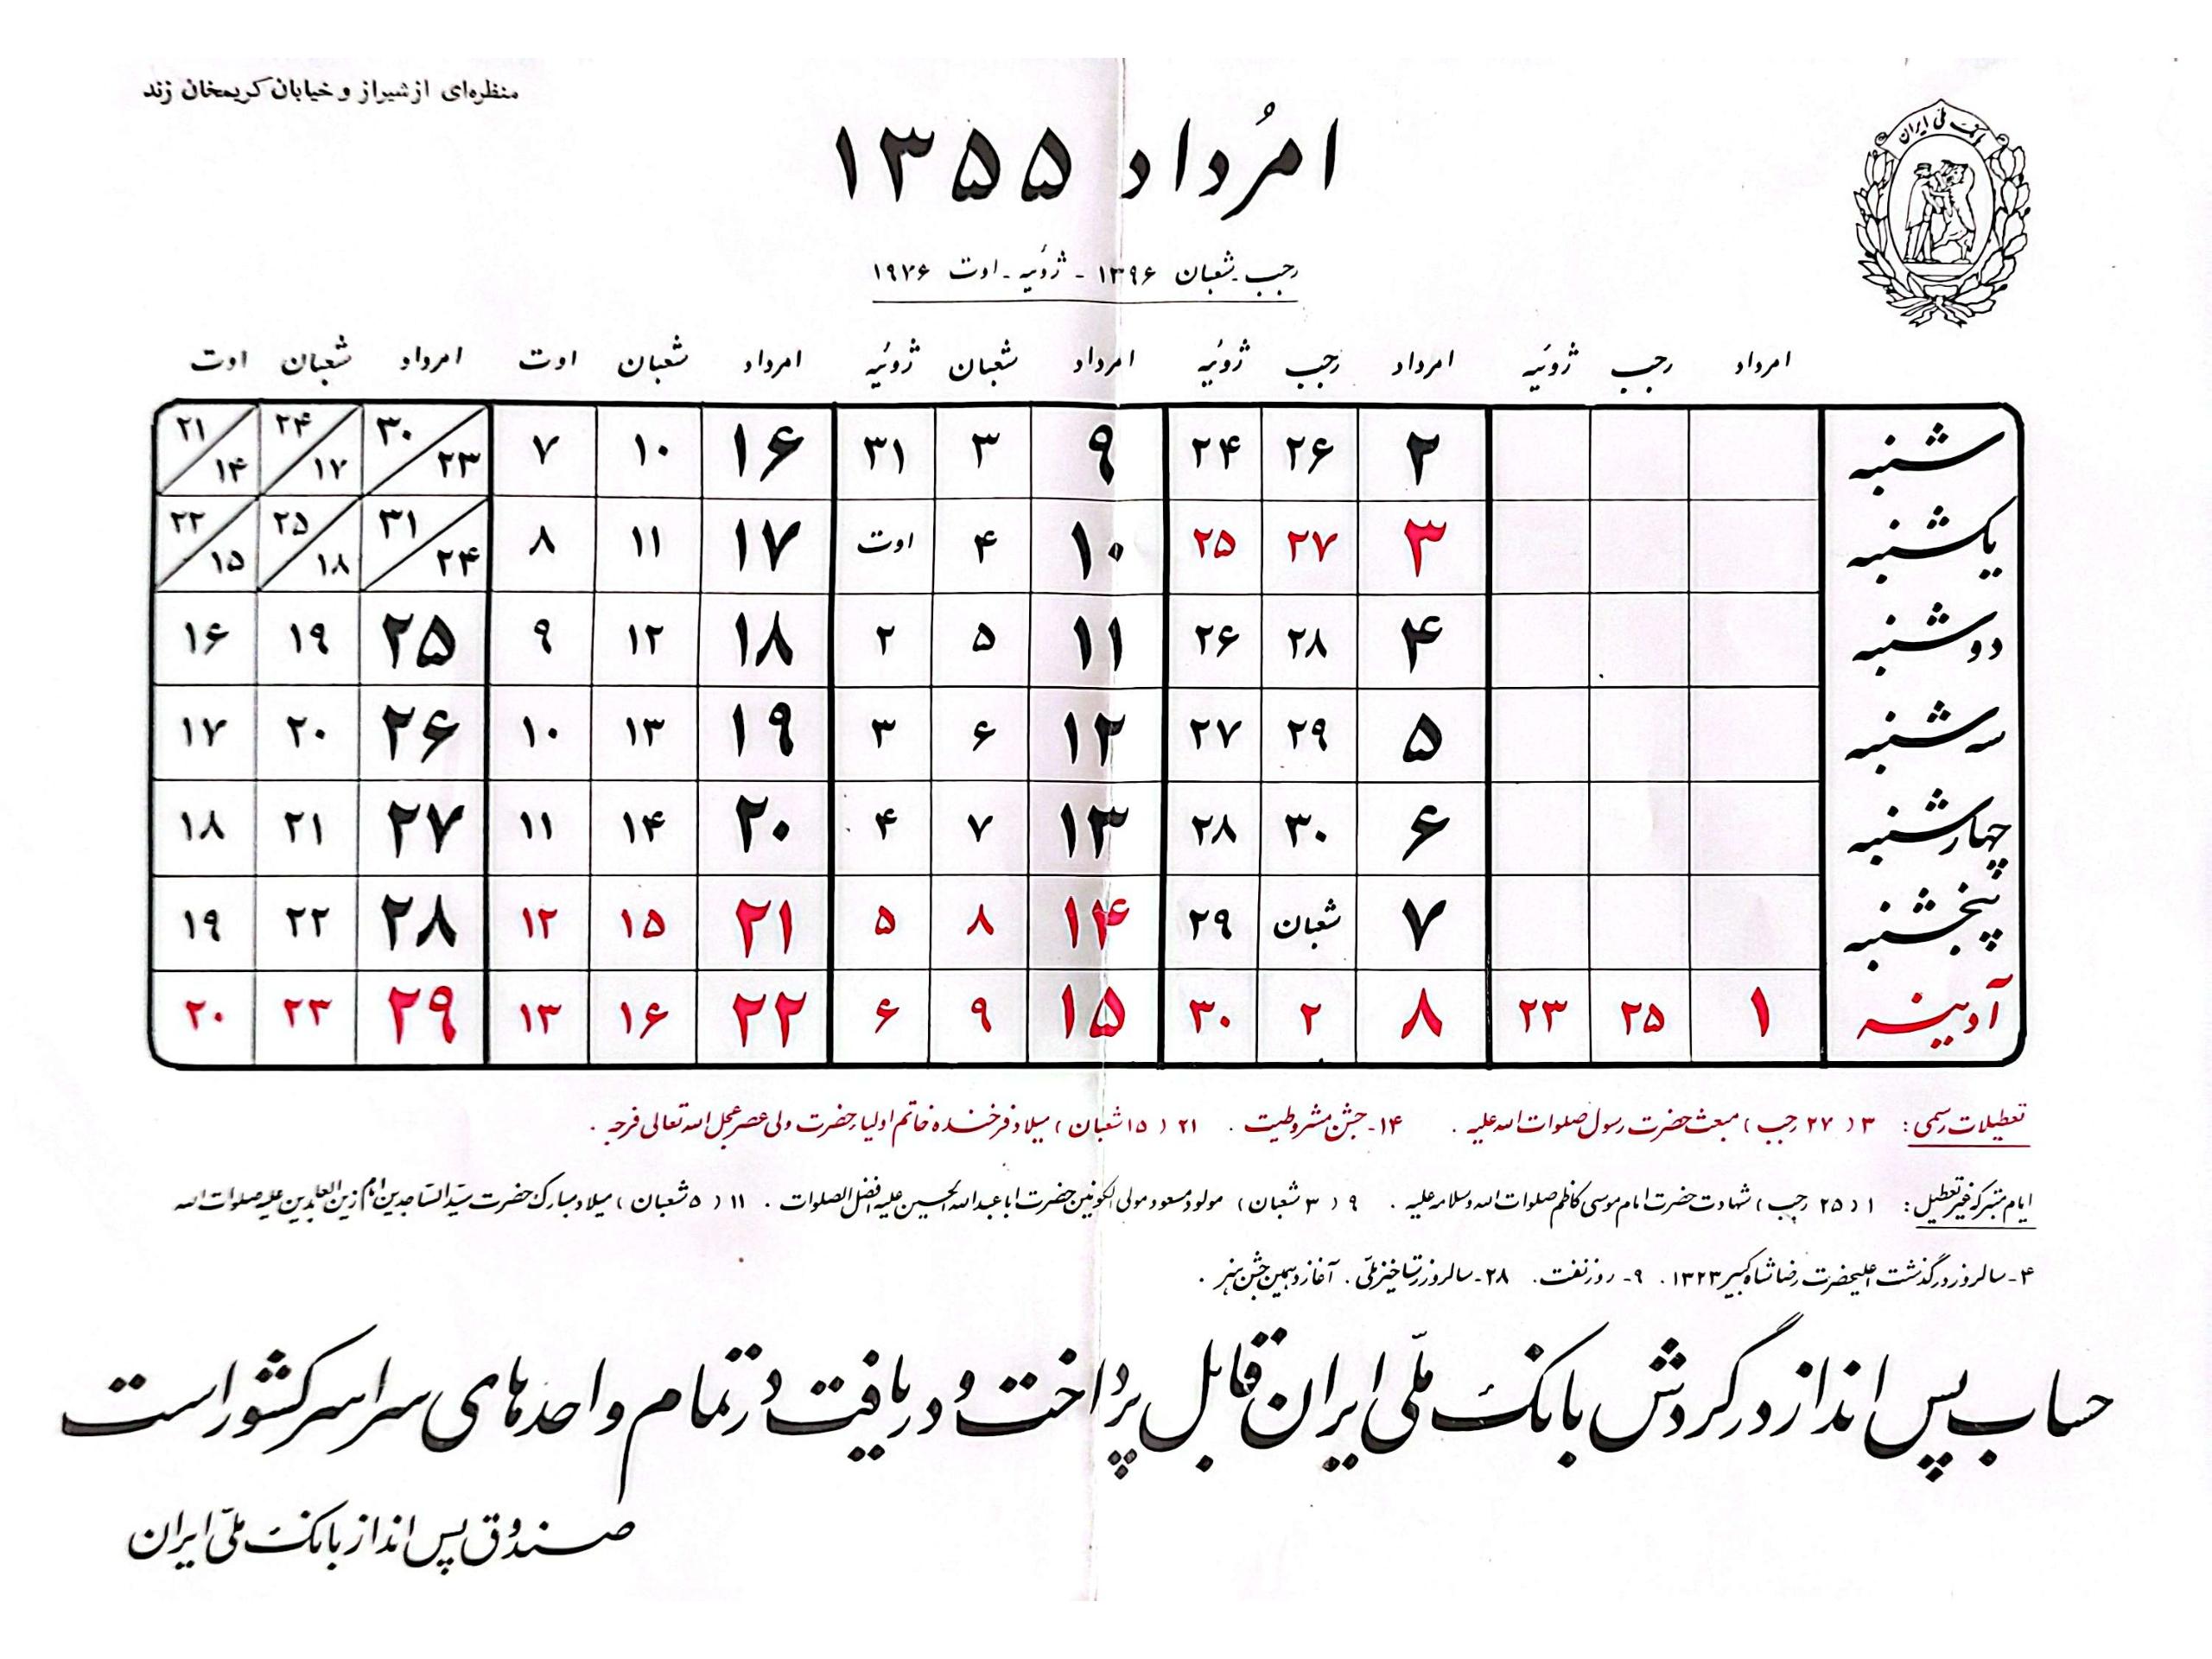 منظره‌ای از شیراز و خیابان کریمخان زند
بانک ملی ایران
امُرداد ۱۳۵۵
رجب ـ شعبان ۱۳۹۶ - ژوئیه ـ اوت ۱۹۷۶
امرداد رجب ژوئیه امرداد رجب ژوئیه امرداد شعبان ژوئیه امرداد شعبان اوت امرداد شعبان اوت
شنبه ۲ ۲۶ ۲۴ ۹ ۳ ۳۱ ۱۶ ۱۰ ۷ ۳۰/۲۳ ۲۴/۱۷ ۲۱/۱۴
یکشنبه ۳ ۲۷ ۲۵ ۱۰ ۴ اوت ۱۷ ۱۱ ۸ ۳۱/۲۴ ۲۵/۱۸ ۲۲/۱۵
دوشنبه ۴ ۲۸ ۲۶ ۱۱ ۵ ۲ ۱۸ ۱۲ ۹ ۲۵ ۱۹ ۱۶
سه شنبه ۵ ۲۹ ۲۷ ۱۲ ۶ ۳ ۱۹ ۱۳ ۱۰ ۲۶ ۲۰ ۱۷
چهارشنبه ۶ ۳۰ ۲۸ ۱۳ ۷ ۴ ۲۰ ۱۴ ۱۱ ۲۷ ۲۱ ۱۸
پنجشنبه ۷ شعبان ۲۹ ۱۴ ۸ ۵ ۲۱ ۱۵ ۱۲ ۲۸ ۲۲ ۱۹
آدینه ۱ ۲۵ ۲۳ ۸ ۲ ۳۰ ۱۵ ۹ ۶ ۲۲ ۱۶ ۱۳ ۲۹ ۲۳ ۲۰
تعطیلات رسمی : ۳ ( ۲۷ رجب ) مبعث حضرت رسول صلوات الله علیه . ۱۴- جشن مشروطیت . ۲۱ ( ۱۵ شعبان ) میلاد فرخنده خاتم اولیا حضرت ولی عصر عجل الله تعالی فرجه .
ایام متبرکه غیر تعطیل : ۱ ( ۲۵ رجب ) شهادت حضرت امام موسی کاظم صلوات الله و سلامه علیه . ۹ ( ۳ شعبان ) مولود مسعود مولی الکونین حضرت ابا عبدالله الحسین علیه افضل الصلوات . ۱۱ ( ۵ شعبان ) میلاد مبارک حضرت سیّد السّاجدین امام زین العابدین علیه صلوات الله
۴- سالروز درگذشت اعلیحضرت رضا شاه کبیر ۱۳۲۳ . ۹- روز نفت . ۲۸- سالروز رستاخیز ملّی . آغاز دهمین جشن هنر .
حساب پس انداز در گردش بانک ملّی ایران قابل پرداخت و دریافت در تمام واحدهای سراسر کشور است
صندوق پس انداز بانک ملّی ایران